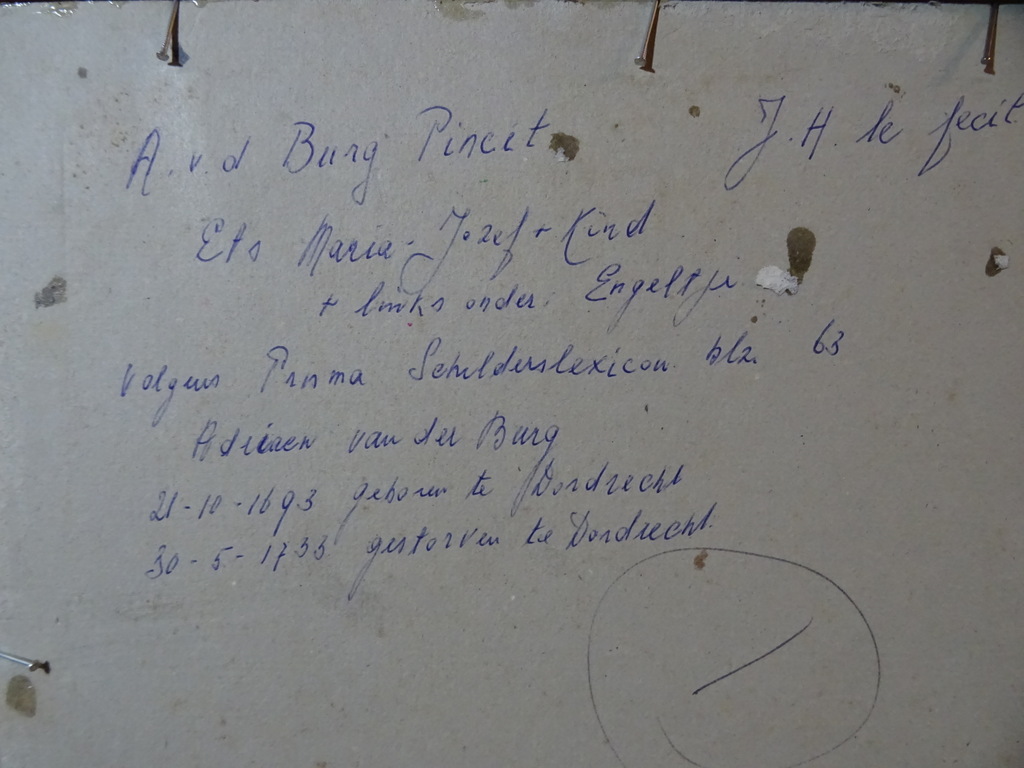 A. v. d Burg Pincit J. H. le fecit
Ets Maria - Jozef + Kind
+ links onder. Engeltje
volgens Prisma Schilderslexicon blz. 63
Adriaen van der Burg
21-10-1693 geboren te Dordrecht
30-5-1733 gestorven te Dordrecht.